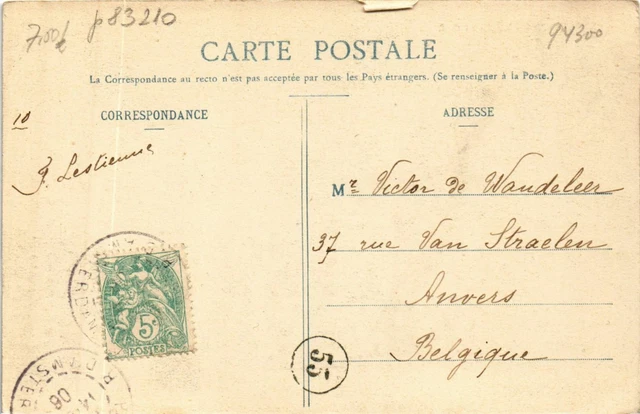 7,50f
p83210
94300
CARTE POSTALE
La Correspondance au recto n'est pas acceptée par tous les Pays étrangers. (Se renseigner à la Poste.)
CORRESPONDANCE
ADRESSE
10
Lestienne
Mr Victor de Wandeleer
37 rue Van Straelen
Anvers
Belgique
5c
POSTES
55